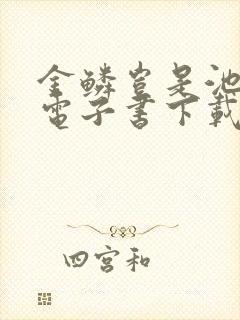 金鱗豈是池
電子書下載
四宮和